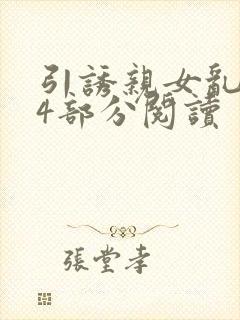 引誘親女亂
4部分閱讀
張堂孝